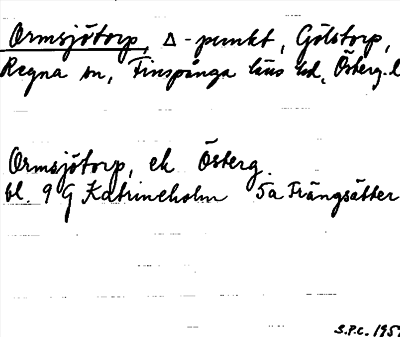 Ormsjötorp, Δ-punkt, Gölstorp,
Regna sn, Finspånga läns hd, Österg. l
Ormsjötorp, ek Österg.
bl. 9 G Katrineholm 5a Frängsätter
S.P.C. 195